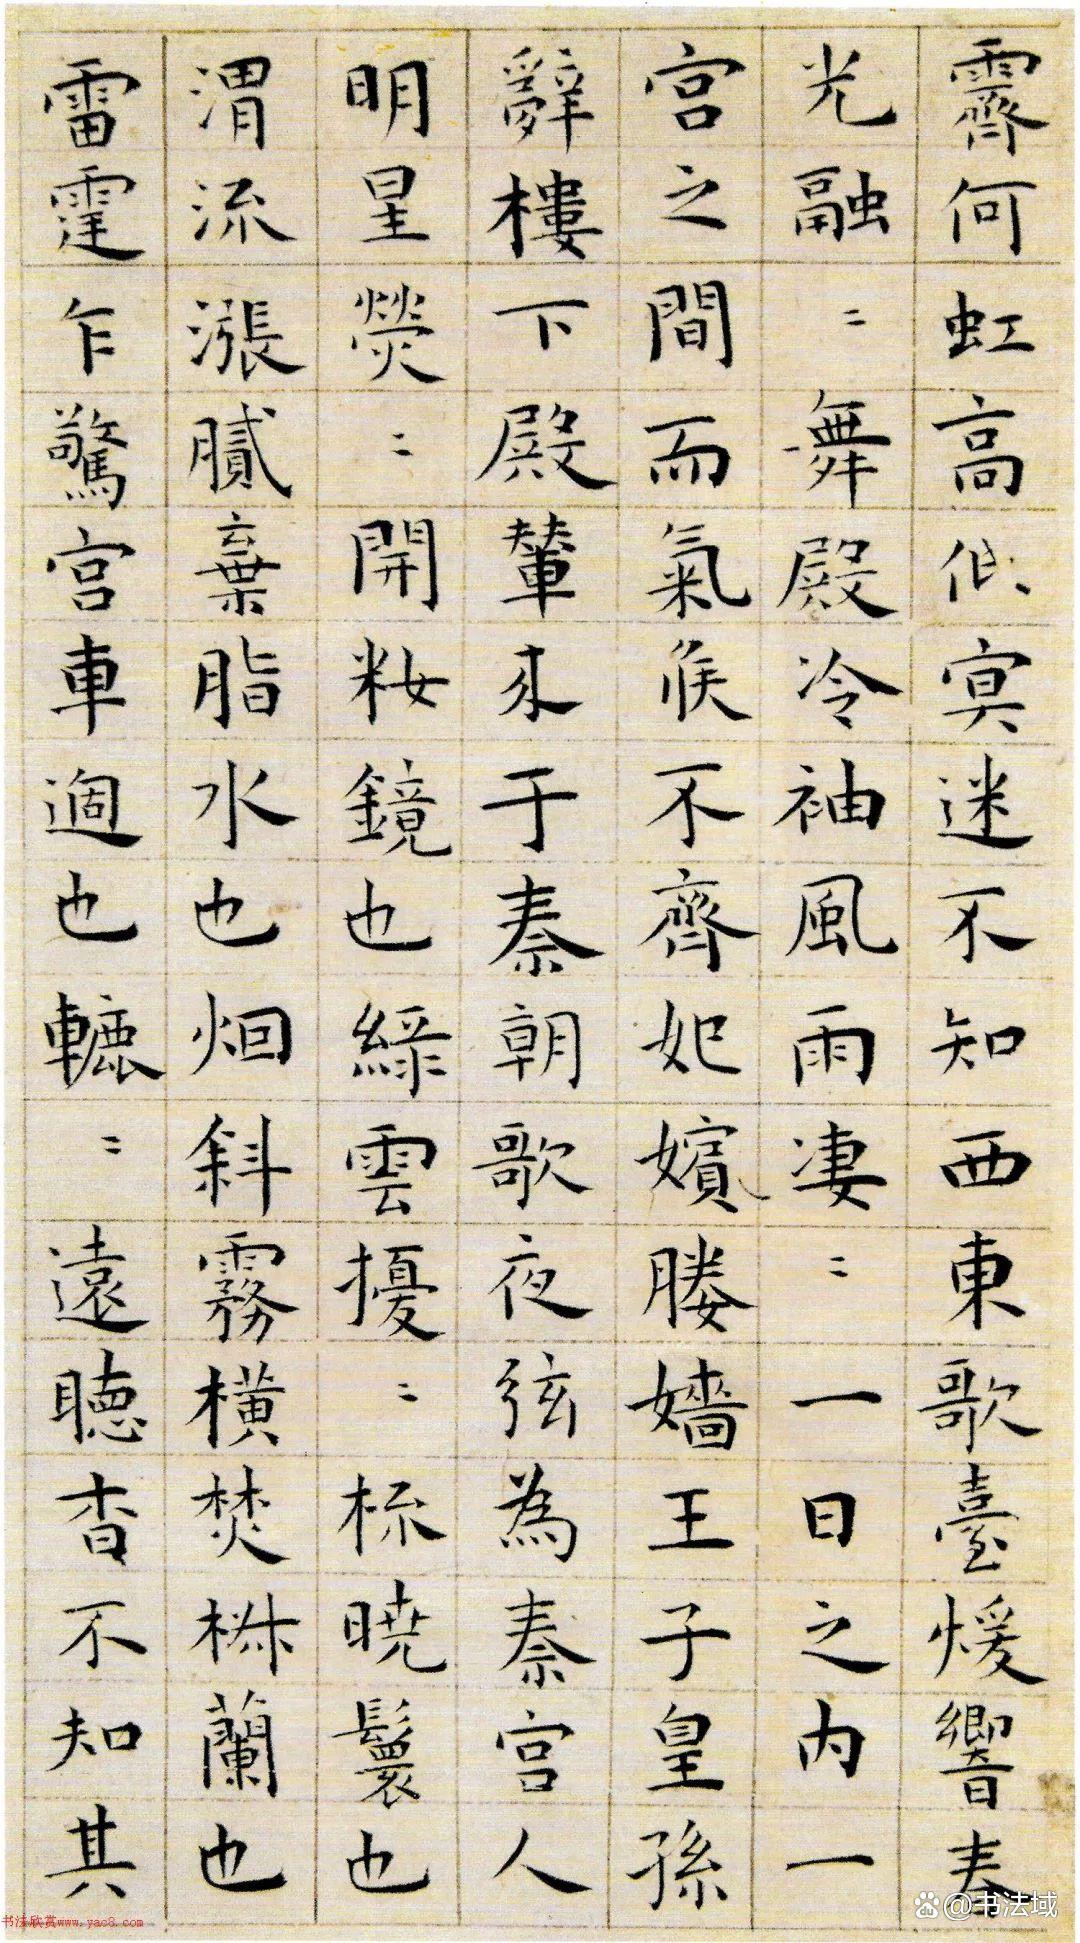 霽何虹高低冥迷不知西東歌臺煖響春
光融〻舞殿冷袖風雨凄〻一日之内一
宮之間而氣候不齊妃嬪媵嬙王子皇孫
辭樓下殿輦來于秦朝歌夜弦為秦宮人
明星熒〻開粧鏡也綠雲擾〻梳曉鬟也
渭流漲膩棄脂水也烟斜霧橫焚椒蘭也
雷霆乍驚宮車過也轆〻遠聽杳不知其
书法欣赏www.yac8.com
@书法域